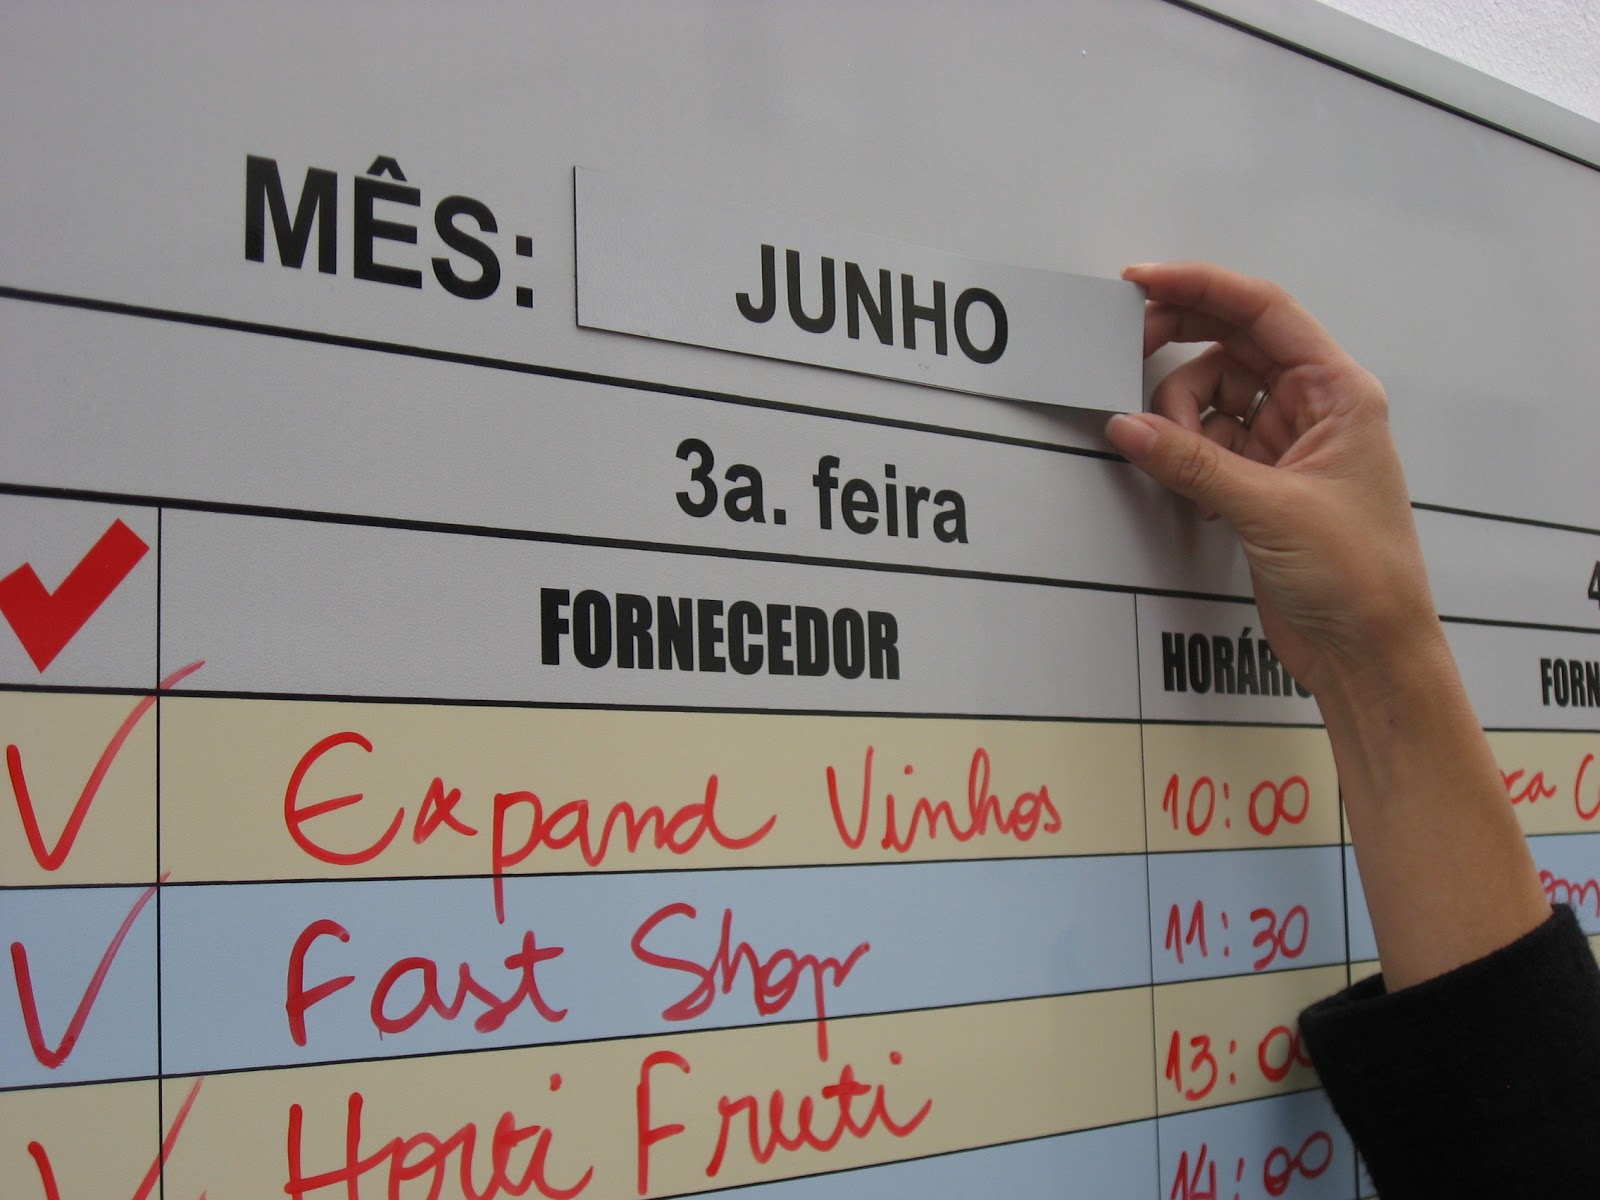 MÊS: JUNHO
3a. feira
FORNECEDOR HORÁRIO
Expand Vinhos 10:00
Fast Shop 11:30
Horti Fruti 13:00
14:00